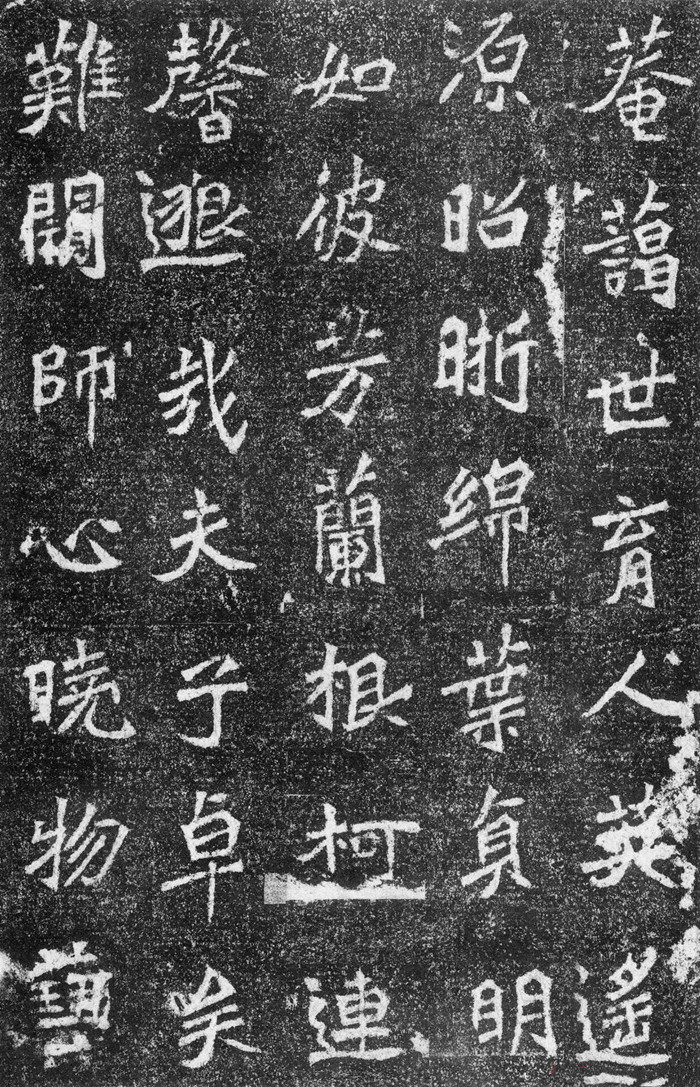 菴藹世育人英遥
源昭晣綿葉貞明
如彼芳蘭根柯連
馨邈哉夫子卓矣
難闚師心曉物藝